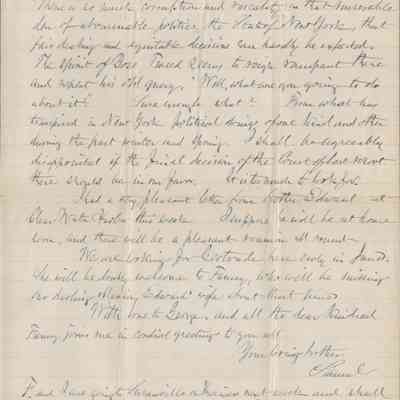 There is so much corruption and rascality in that miserable
den of abominable politics, the State of New York, that
fair dealing and equitable decisions can hardly be expected.
The spirit of Boss Tweed seems to reign rampant there
and repeat his old query, "Well, what are you going to do
about it?" Sure enough what? From what has
transpired in New York political doings of one kind and other
during the past winter and Spring. I shall be agreeably
disappointed if the final decision of the Court of last resort
there should be in our favor. It is too much to hope for.
Had a very pleasant letter from brother Edward at
Clear Water this week. I suppose he will be at home
soon, and there will be a pleasant reunion all round.
We are looking for Gertrude here early in June.
She will be doubly welcome to Fanny, who will be missing
our darling "Edward" wife about that time.
With love to George, and all the dear kindred
Fanny joins me in cordial greeting to you all
Your loving brother
Samuel
F. and I are going to next week and shall